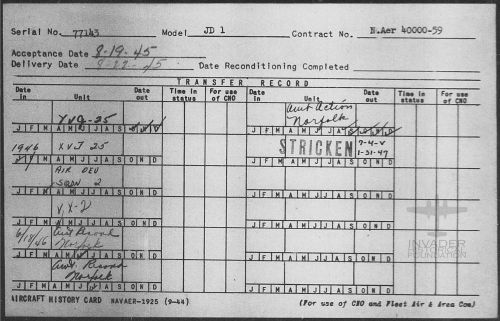 Serial No. 77143 Model JD 1 Contract No. N.Aer 40000-59
Acceptance Date 8-19-45
Delivery Date 8-22-45 Date Reconditioning Completed
TRANSFER RECORD
Date in Unit Date out Time in status For use of CNO Date in Unit Date out Time in status For use of CNO
XVJ-25 Acft Action Norfolk
J F M A M J J A S O N D J F M A M J J A S O N D
1946 XVJ 25 STRICKEN 7-4-V 1-31-47
J F M A M J J A S O N D J F M A M J J A S O N D
AIR DEV
SQDN 2
J F M A M J J A S O N D J F M A M J J A S O N D
VX-2
J F M A M J J A S O N D J F M A M J J A S O N D
6/18/46 Norfolk
J F M A M J J A S O N D J F M A M J J A S O N D
Norfolk
J F M A M J J A S O N D J F M A M J J A S O N D
INVADER
FOUNDATION
AIRCRAFT HISTORY CARD NAVAER-1925 (9-44) (For use of CNO and Fleet Air & Area Com)